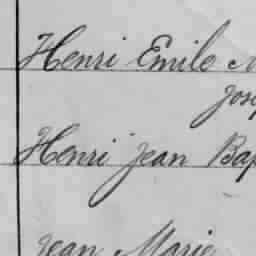 Henri Emile
Henri Jean
Jean Marie